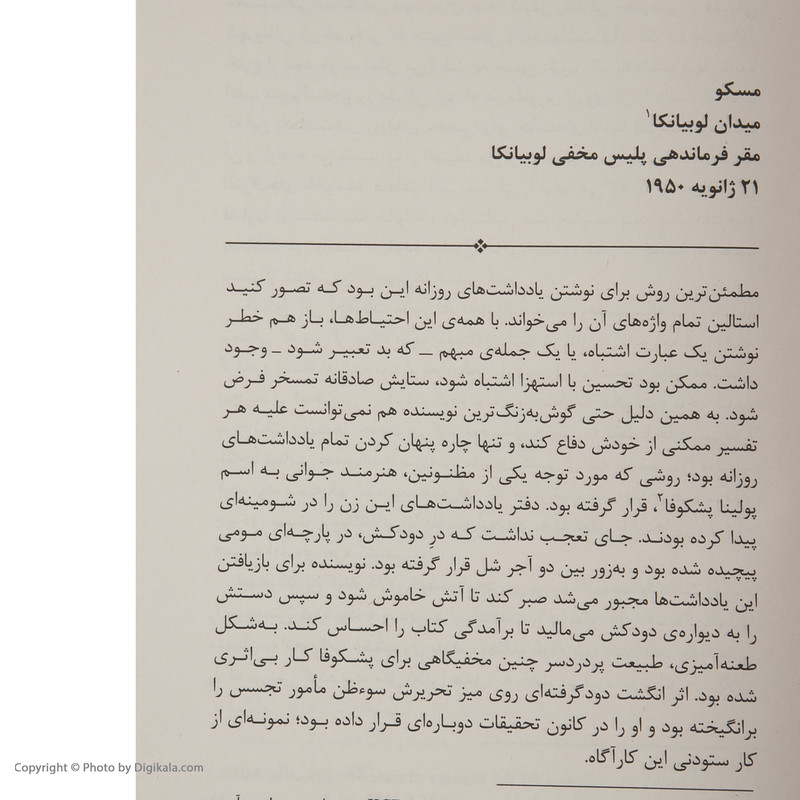 مسکو
میدان لوبیانکا۱
مقر فرماندهی پلیس مخفی لوبیانکا
۲۱ ژانویه ۱۹۵۰
مطمئن‌ترین روش برای نوشتن یادداشت‌های روزانه ایـن بـود کـه تصـور کنیـد
استالین تمام واژه‌های آن را می‌خواند. با همه‌ی این احتیـاط‌هـا، بـاز هـم خطـر
نوشتن یک عبارت اشتباه، یا یک جمله‌ی مبهم ــ که بد تعبیـر شـود ــ وجـود
داشت. ممکن بود تحسین با استهزا اشتباه شود، ستایش صادقانه تمسخر فـرض
شود. به همین دلیل حتی گوش‌به‌زنگ‌ترین نویسنده هم نمی‌توانست علیـه هـر
تفسیر ممکنی از خودش دفاع کند، و تنها چاره پنهان کردن تمام یادداشت‌هـای
روزانه بود؛ روشی که مورد توجه یکی از مظنـونین، هنرمند جوانی بـه اسـم
پولینا پشکوفا۲، قرار گرفته بود. دفتر یادداشـت‌هـای ایـن زن را در شـومینه‌ای
پیدا کرده بودنـد. جـای تعجـب نداشـت کـه درِ دودکـش، در پارچـه‌ای مـومی
پیچیده شده بود و به‌زور بین دو آجر شل قرار گرفته بود. نویسنده برای بازیافتن
این یادداشت‌ها مجبور می‌شد صبر کند تا آتش خاموش شود و سپس دسـتش
را به دیواره‌ی دودکش می‌مالید تا برآمدگی کتاب را احساس کنـد. بـه‌شـکل
طعنه‌آمیزی، طبیعت پردردسر چنین مخفیگاهی برای پشـکوفا کـار بـی‌اثـری
شده بود. اثر انگشت دودگرفته‌ای روی میز تحریرش سوءظن مأمور تجسس را
برانگیخته بود و او را در کانون تحقیقات دوباره‌ای قـرار داده بـود؛ نمونـه‌ای از
کار ستودنی این کارآگاه.
Copyright © Photo by Digikala.com